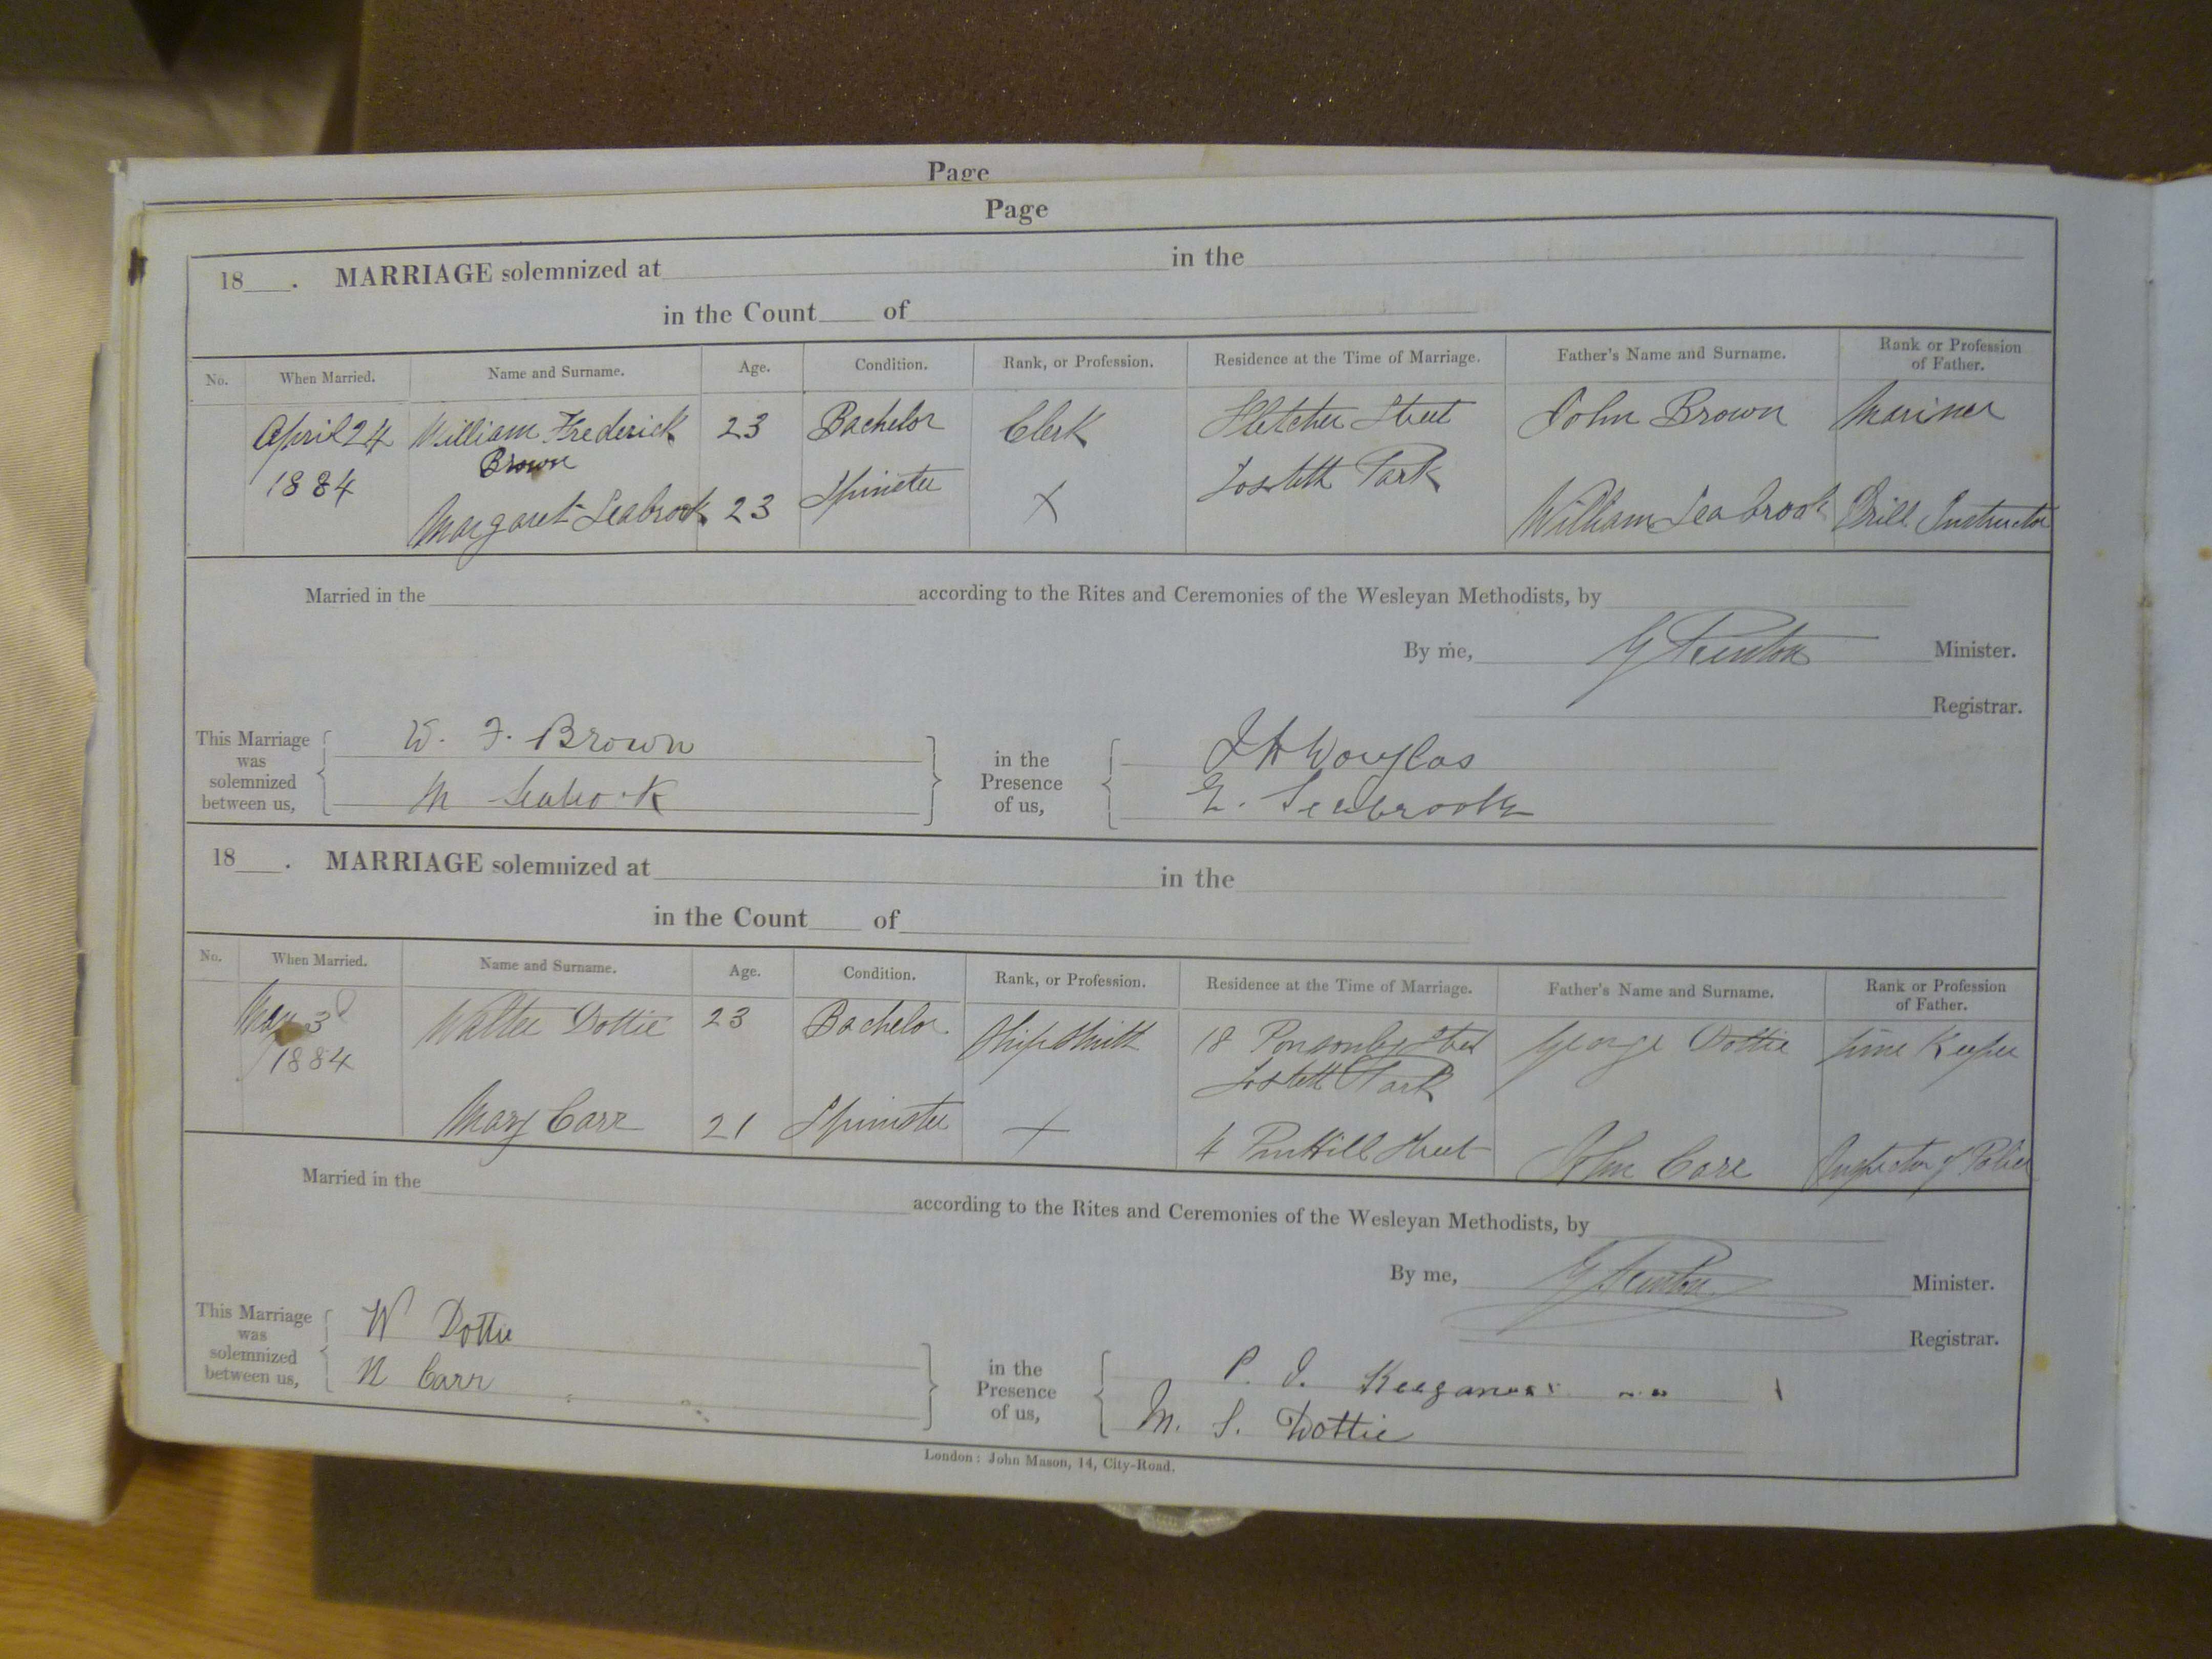 Page
Page
18 . MARRIAGE solemnized at in the
in the Count of
No. When Married. Name and Surname. Age. Condition. Rank, or Profession. Residence at the Time of Marriage. Father's Name and Surname. Rank or Profession of Father.
April 24 William Frederick 23 Bachelor Clerk Fletcher Street John Brown Mariner
Brown
1884 Park
Margaret Seabrook 23 Spinster X William Seabrook Drill Instructor
Married in the according to the Rites and Ceremonies of the Wesleyan Methodists, by
By me, Minister.
Registrar.
This Marriage was solemnized between us, W. F. Brown in the Presence of us, Douglas
M E. Seabrook
18 . MARRIAGE solemnized at in the
in the Count of
No. When Married. Name and Surname. Age. Condition. Rank, or Profession. Residence at the Time of Marriage. Father's Name and Surname. Rank or Profession of Father.
May 3d Walter Dottie 23 Bachelor Ship Smith 18 Ponsonby Street George Dottie Time Keeper
1884 Park
Mary Carr 21 Spinster X 4 Street John Carr Inspector of Police
Married in the according to the Rites and Ceremonies of the Wesleyan Methodists, by
By me, Minister.
Registrar.
This Marriage was solemnized between us, W Dottie in the Presence of us, P. J. Keegan
Carr M. S. Dottie
London: John Mason, 14, City-Road.